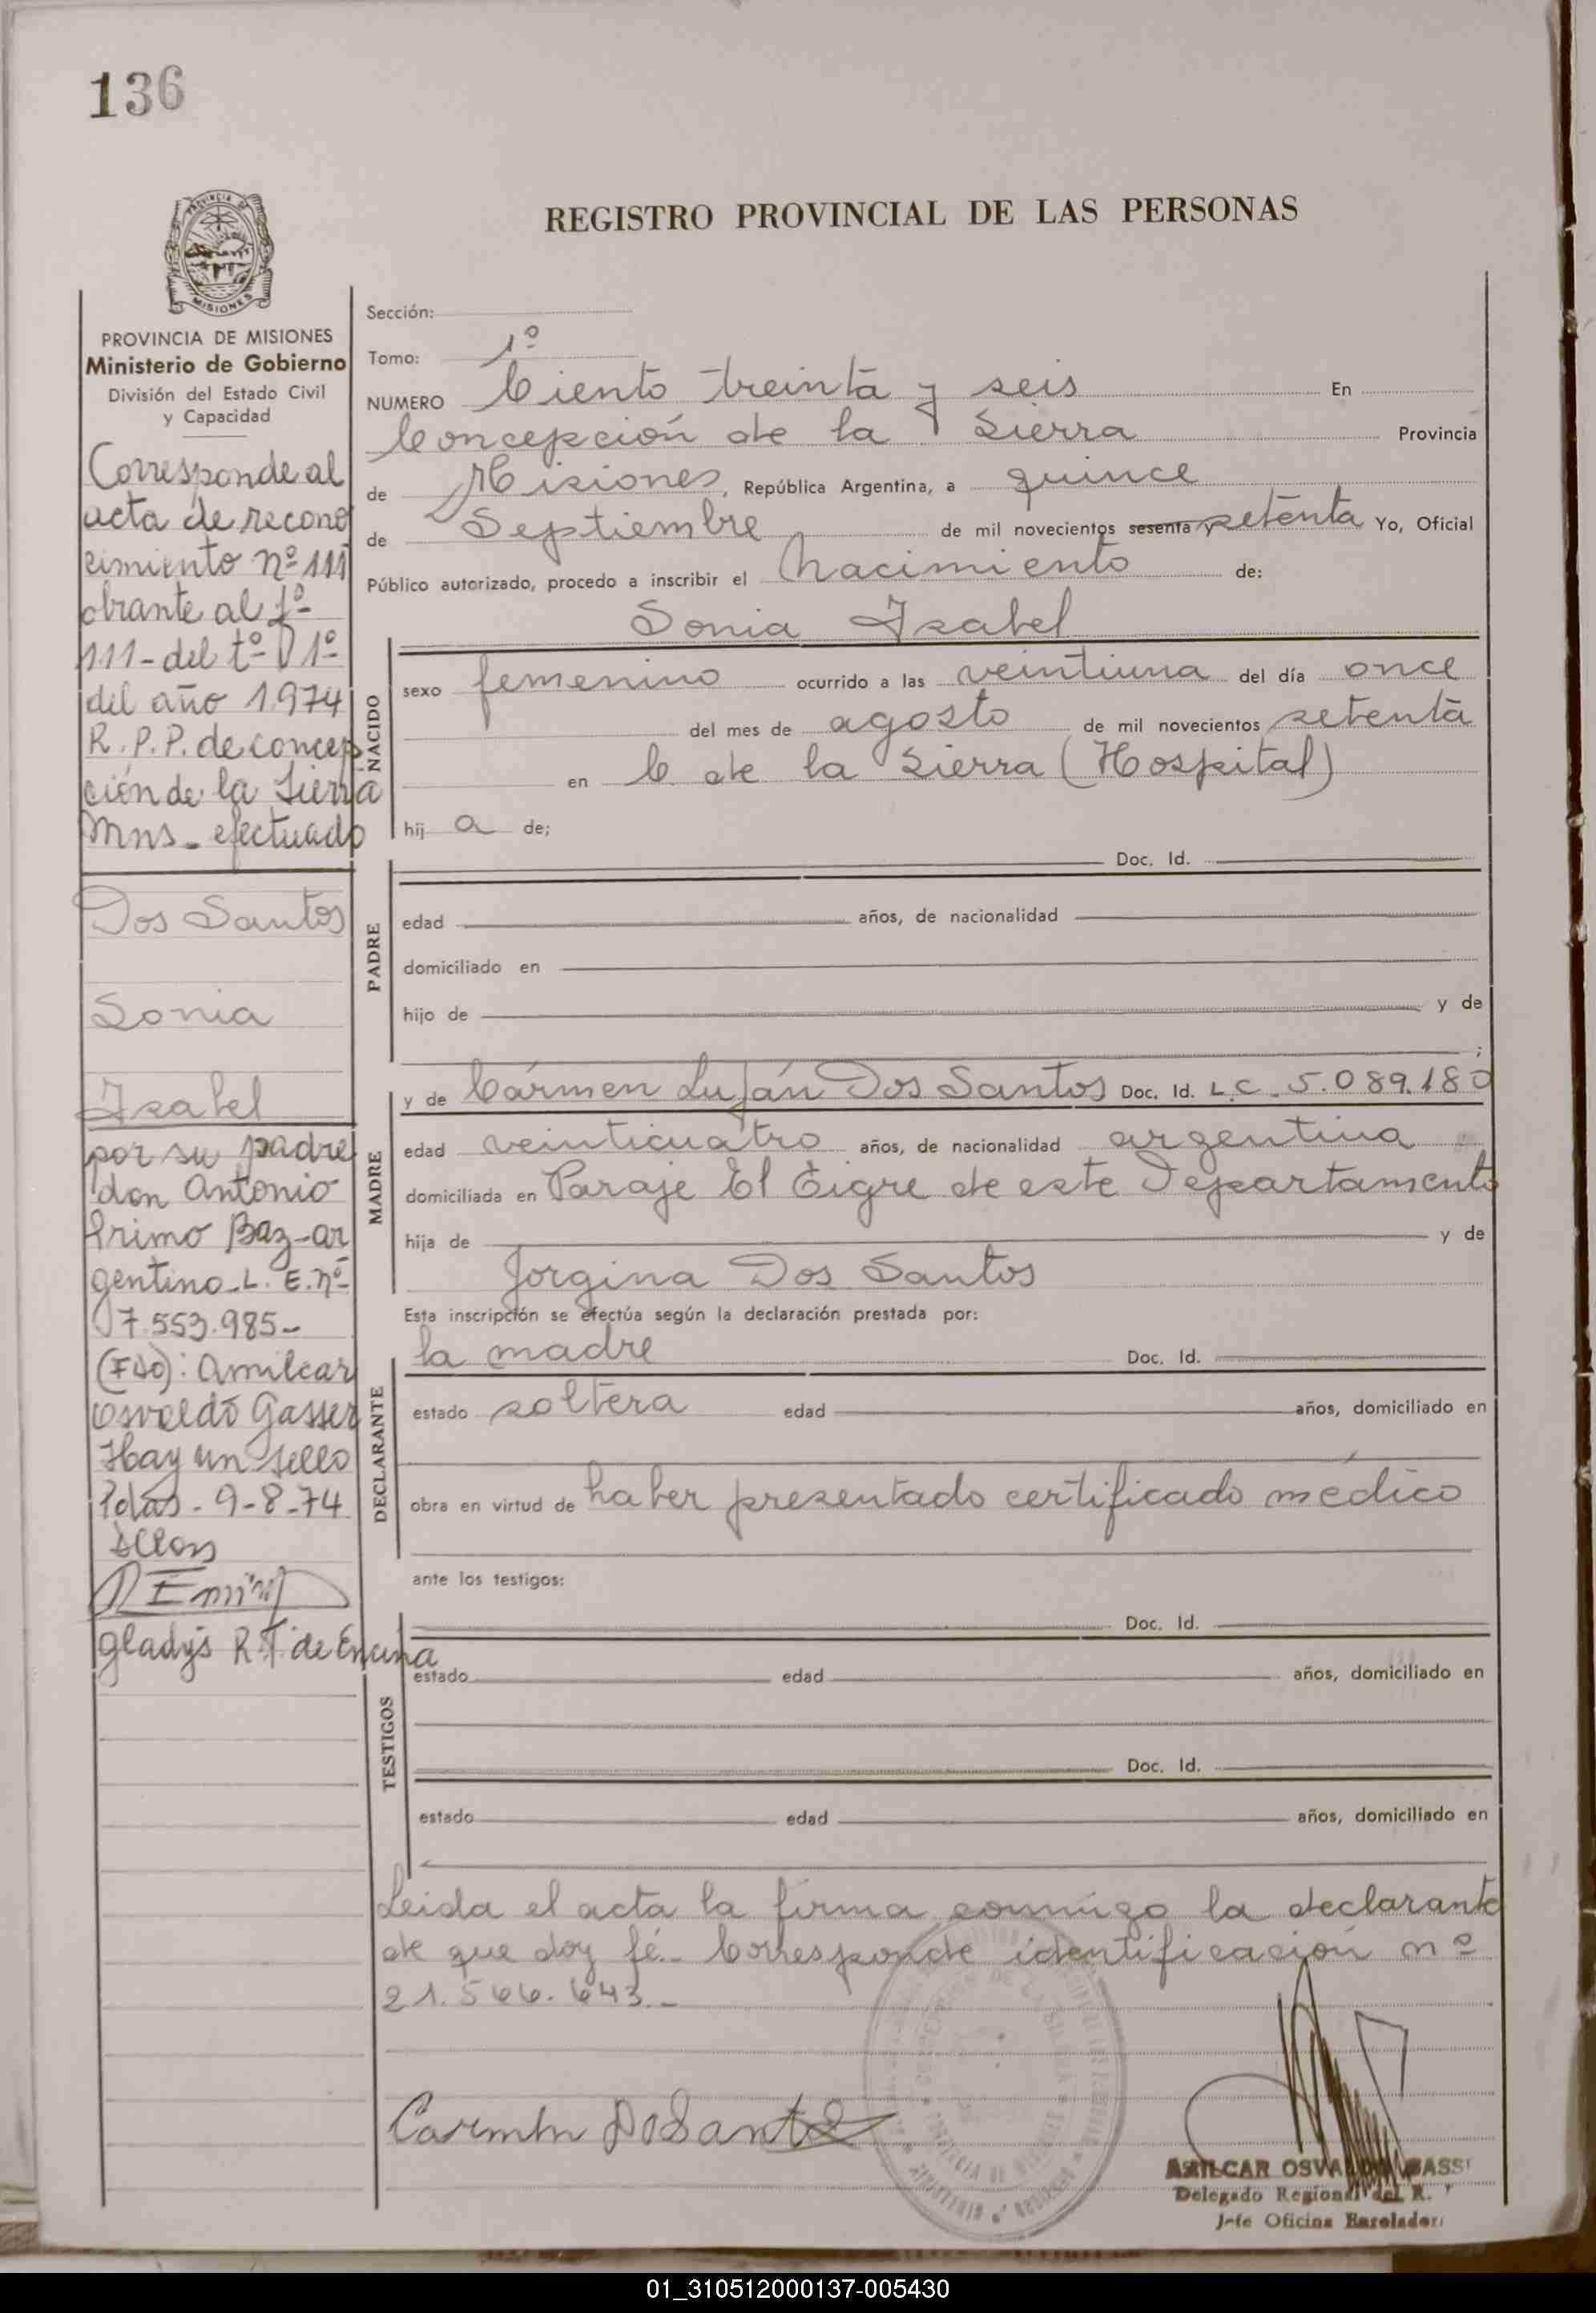 136
REGISTRO PROVINCIAL DE LAS PERSONAS
MISIONES
PROVINCIA DE MISIONES
Ministerio de Gobierno
División del Estado Civil
y Capacidad
Corresponde al
acta de recono
cimiento nº 111
obrante al fº
111 - del tº 1º
del año 1974
R. P. P. de concep
ción de la Sierra
Mns - efectuado
Dos Santos
Sonia
Isabel
por su padre
don Antonio
Primo Baz - ar
gentino - L. E. nº
7.553.985 -
(FDO): Amilcar
Osvaldo Gasser
Hay un sello
Pdas - 9-8-74
Gladys R. T. de Encina
Sección:
Tomo: 1º
NUMERO Ciento treinta y seis En
Concepción de la Sierra Provincia
de Misiones, República Argentina, a quince
de Septiembre de mil novecientos sesenta y setenta Yo, Oficial
Público autorizado, procedo a inscribir el Nacimiento de:
Sonia Isabel
NACIDO
sexo femenino ocurrido a las veintiuna del día once
del mes de agosto de mil novecientos setenta
en C de la Sierra (Hospital)
hij a de;
Doc. Id.
PADRE
edad años, de nacionalidad
domiciliado en
hijo de y de
;
y de Cármen Luján Dos Santos Doc. Id. L.C. 5.089.180
MADRE
edad veinticuatro años, de nacionalidad argentina
domiciliada en Paraje El Tigre de este Departamento
hija de y de
Jorgina Dos Santos
Esta inscripción se efectúa según la declaración prestada por:
la madre Doc. Id.
DECLARANTE
estado soltera edad años, domiciliado en
obra en virtud de haber presentado certificado médico
ante los testigos:
Doc. Id.
TESTIGOS
estado edad años, domiciliado en
Doc. Id.
estado edad años, domiciliado en
Leida el acta la firma conmigo la declarante
de que doy fé.- Corresponde identificación nº
21.566.643.-
Carmen DoSantos
AMILCAR OSVALDO GASS
Delegado Regional del R.
Jefe Oficina
01_310512000137-005430